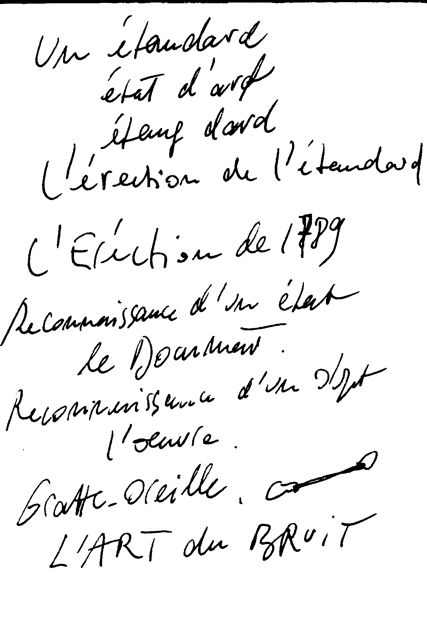 Un étandard
état d'ard
étang dard
L'érection de l'étandard
L'Eréction de 1789
Reconnaissance d'un état
le Document.
Reconnaissance d'un objet
l'oeuvre.
Gratte-Oreille.
L'ART du BRUiT